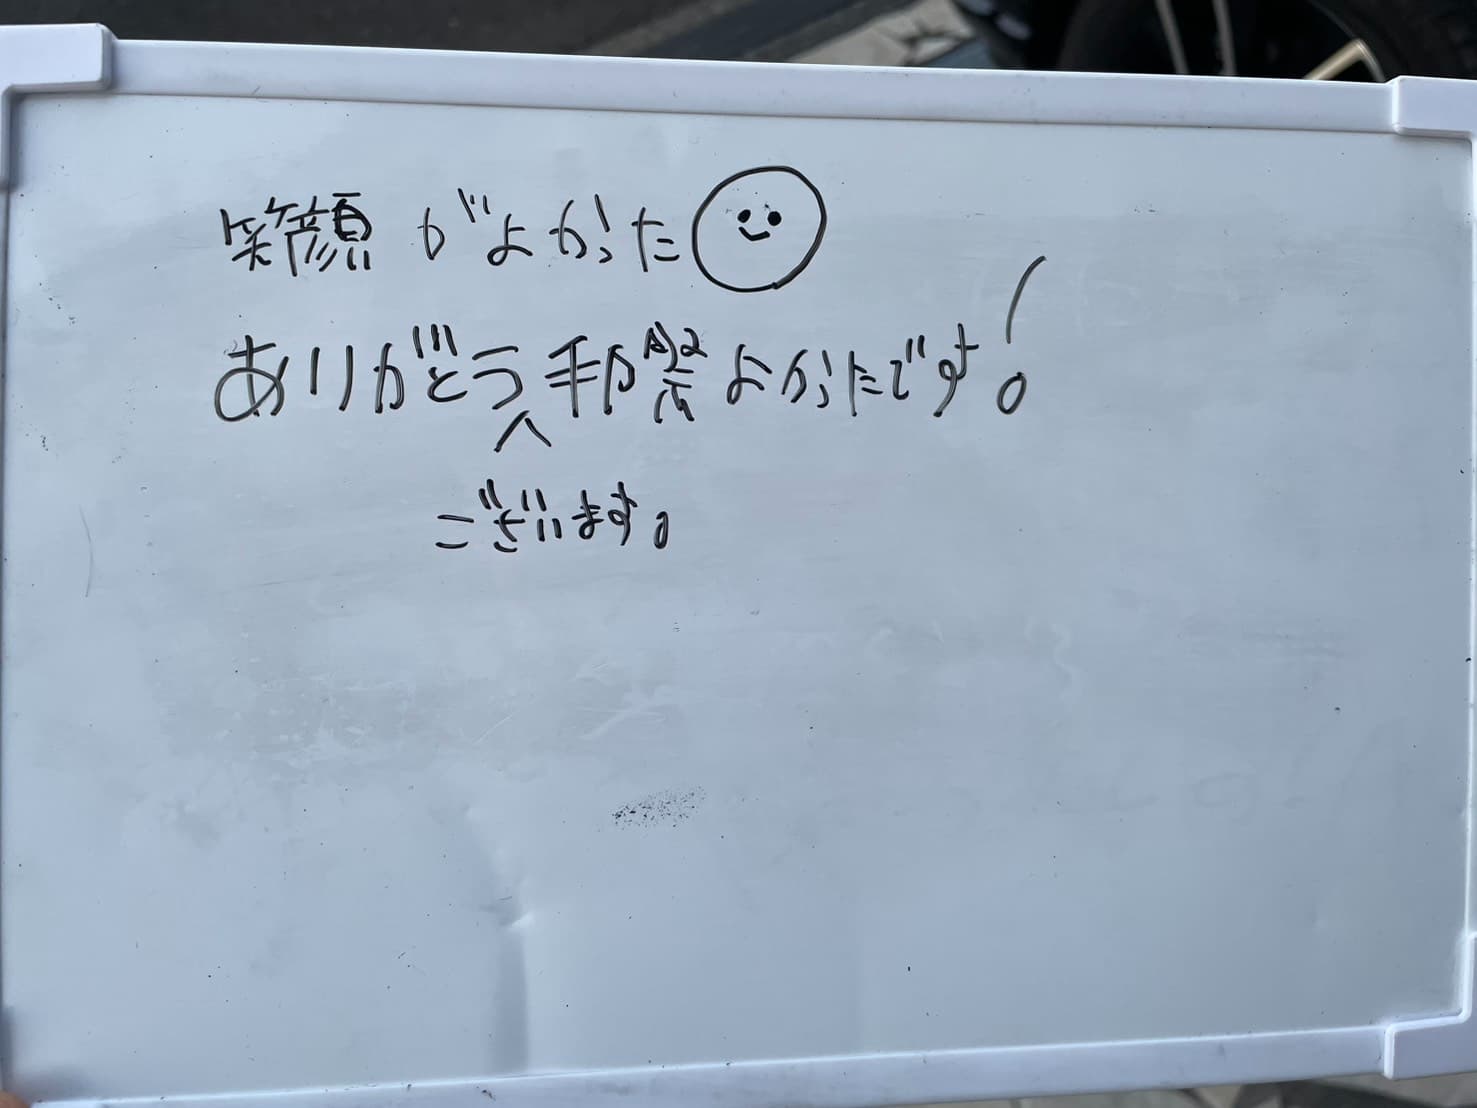 笑顔がよかった
ありがとう手際よかったです!
ございます。